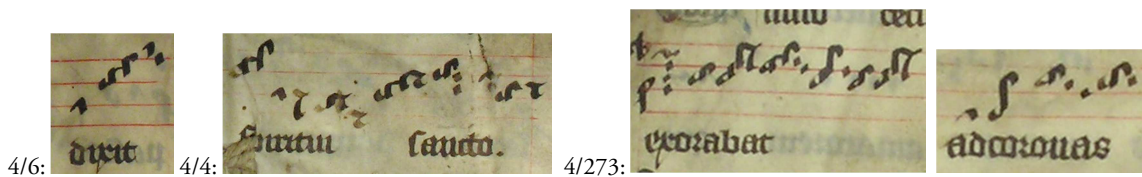 4/6: dixit 4/4: spiritui sancto. 4/273: exorabat adcoronas